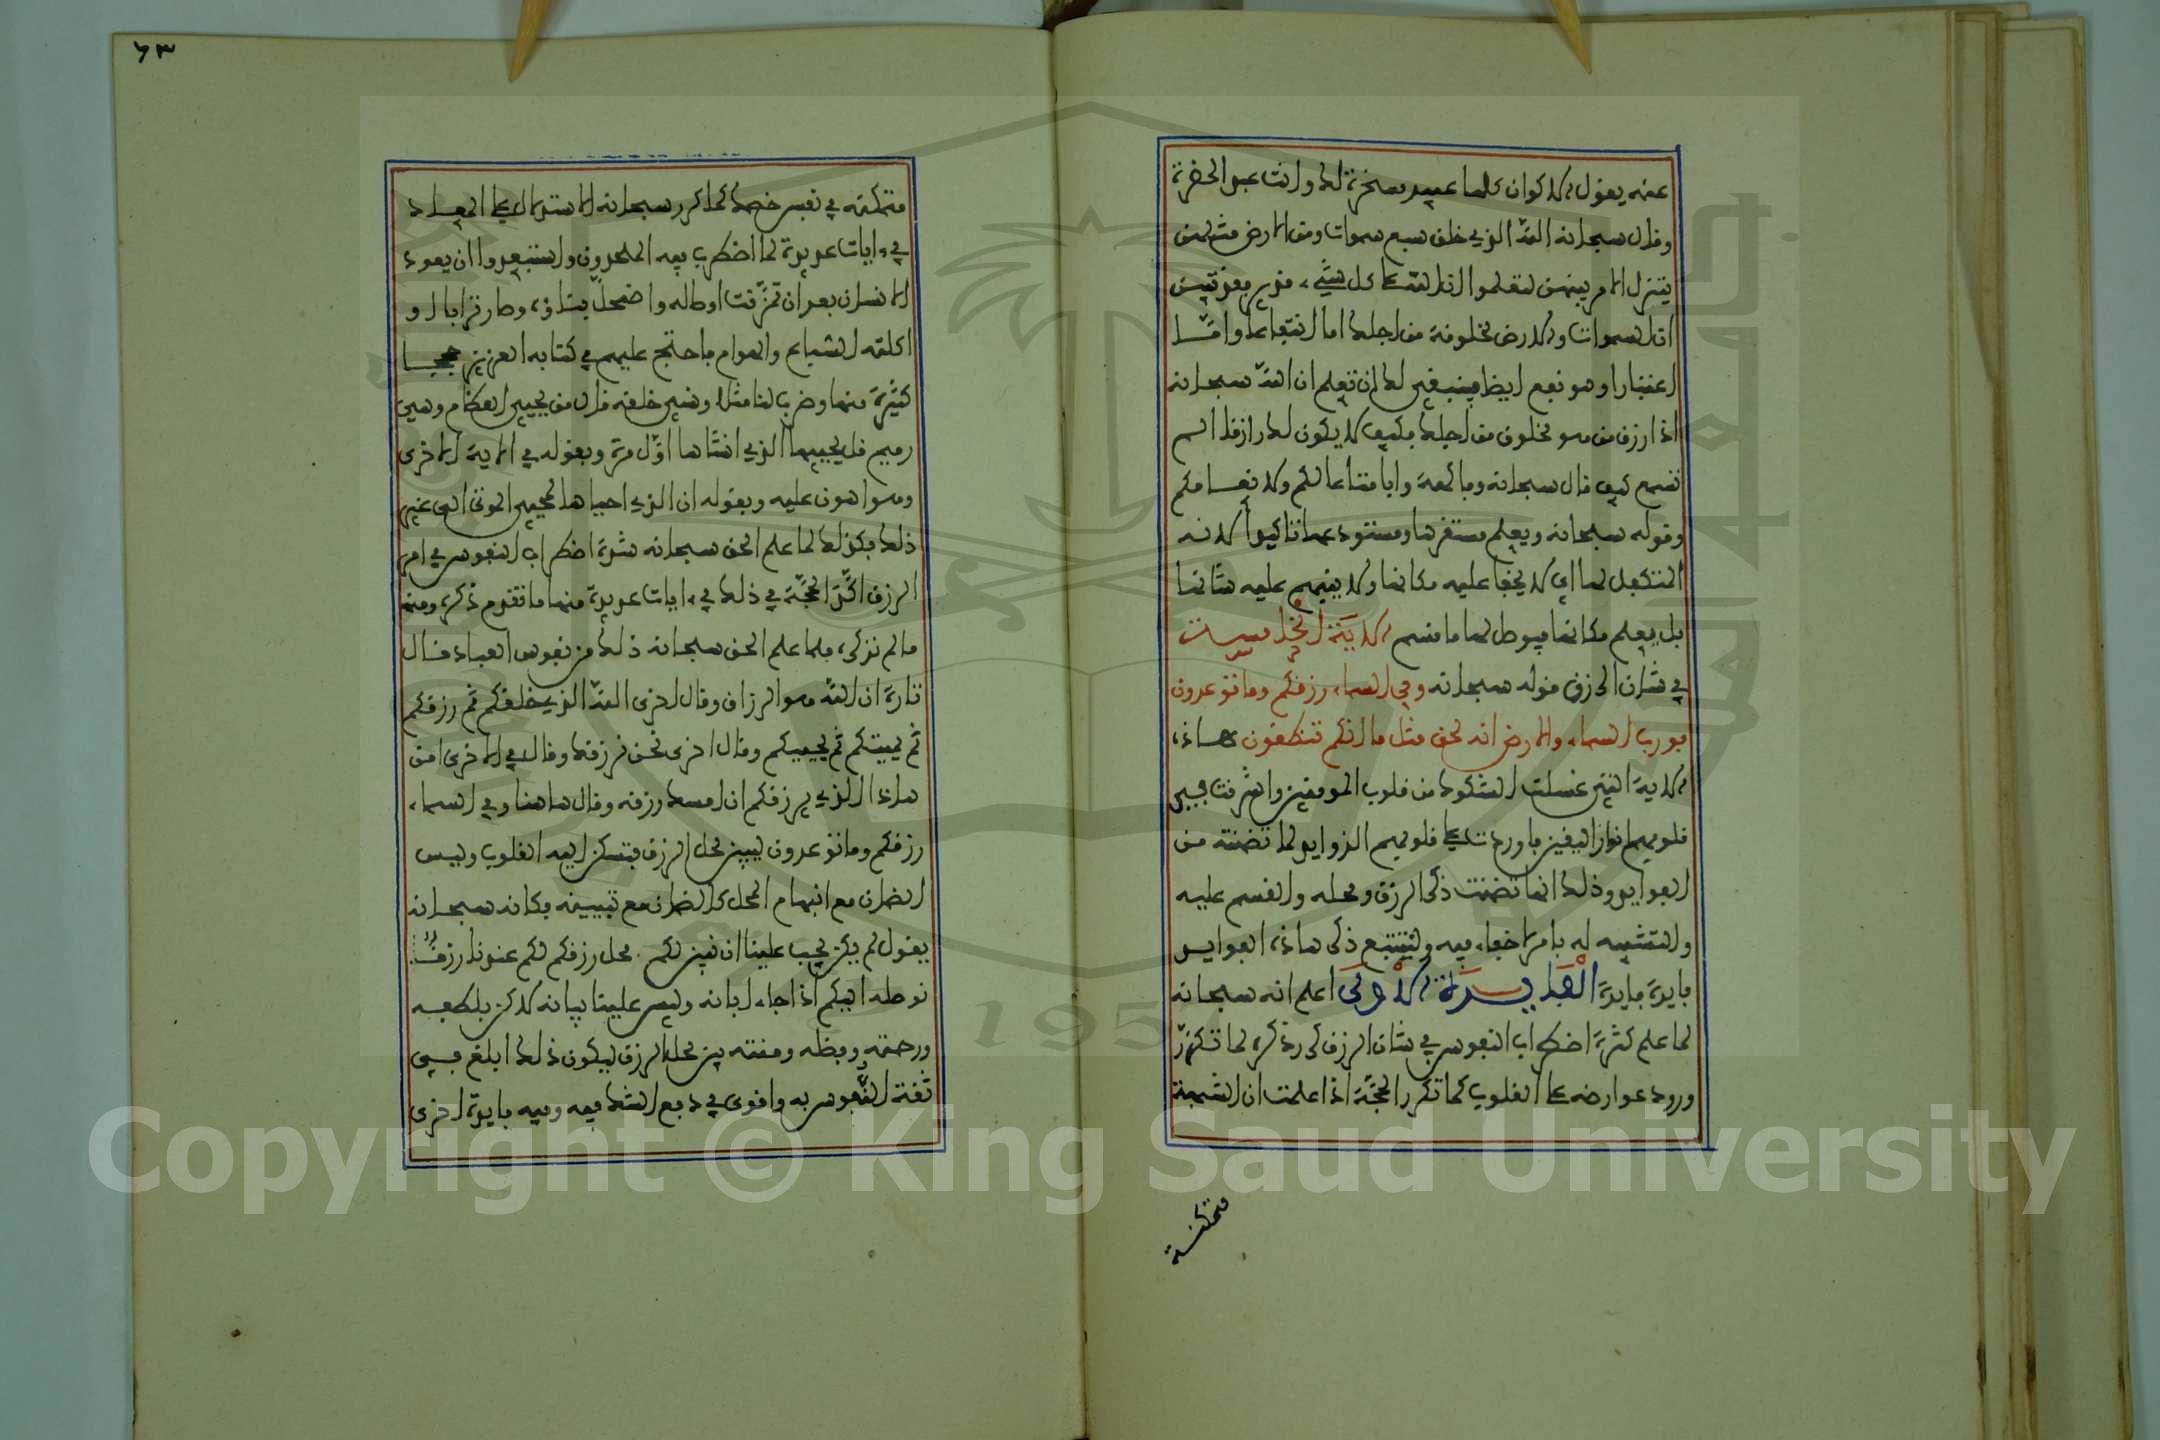 عنه يقول الاكوان كلها عبيد مسخرة لك وانت عبد الحضرة
وقال سبحانه الله الذي خلق سبع سموات ومن الارض مثلهن
يتنزل الامر بينهن لتعلموا ان الله على كل شيء قدير بقد تبين
ان السموات والارض مخلوقة من اجلك اما انتفاعا واما
اعتبارا وهو نفع ايضا فينبغي لك ان تعلم ان الله سبحانه
اذا رزق من هو مخلوق من اجلك فكيف لا يكون لك رازقا الم
تسمع كيف قال سبحانه وفاكهة وابا متاعا لكم ولانعامكم
وقوله سبحانه ويعلم مستقرها ومستودعها تاكيدا لانه
المتكفل لها اي لا يخفا عليه مكانها ولا ينبهم عليه شانها
بل يعلم مكانها فيوصل لها ما قسم الاية الخامسة
في شان الرزق قوله سبحانه وفي السماء رزقكم وما توعدون
فورب السماء والارض انه لحق مثل ما انكم تنطقون هاذه
الاية التي غسلت الشكوك من قلوب المومنين واشرقت في
قلوبهم انوار اليقين فاوردت على قلوبهم الزوايد لما تضمنته من
الفوايد وذلك انها تضمنت ذكر الرزق ومحله والقسم عليه
والتشبيه له بامر لاخفاء فيه ولنتتبع ذكر هاذه الفوايد
فايدة فايدة الفايدة الاولى اعلم انه سبحانه
لما علم كثرة اضطراب النفوس في شان الرزق كرر ذكره لما تكرر
ورود عوارضه على القلوب كما تكرر الحجة اذا علمت ان الشبهة
متمكنة
٦٣
متمكنة في نفس خصمك كما كرر سبحانه الاستدلال على المعاد
في ءايات عديدة لما اضطرب فيه الملحدون واستبعدوا ان يعود
الانسان بعد ان تمزقت اوصاله واضمحل بناؤه وصار ترابا او
اكلته السباع والهوام فاحتج عليهم في كتابه العزيز حججا
كثيرة منها وضرب لنا مثلا ونسي خلقه قال من يحيي العظام وهي
رميم قل يحييها الذي انشاها اول مرة وبقوله في الاية الاخرى
وهو اهون عليه وبقوله ان الذي احياها لمحيي الموتى الى غير
ذلك فكذلك لما علم الحق سبحانه شدة اضطراب النفوس في امر
الرزق اكد الحجة في ذلك في ءايات عديدة منها ما تقدم ذكره ومنه
ما لم نذكره فلما علم الحق سبحانه ذلك من نفوس العباد قال
تارة ان الله هو الرزاق وقال اخرى الله الذي خلقكم ثم رزقكم
ثم يميتكم ثم يحييكم وقال اخرى نحن نرزقك وقال في الاخرى امن
هاذا الذي يرزقكم ان امسك رزقه وقال هاهنا وفي السماء
رزقكم وما توعدون ليبين محل الرزق فتسكن اليه القلوب وليس
الضمان مع انبهام المحل كالضمان مع تبيينه فكانه سبحانه
يقول لم يكن يجب علينا ان نبين لكم محل رزقكم لكم عندنا رزق
نوصله اليكم اذا جاء ابانه وليس علينا بيانه لاكن بلطفه
ورحمته وفضله ومنته بين محل الرزق ليكون ذلك ابلغ في
ثقة النفوس به واقوى في دفع الشك فيه وفيه فايدة اخرى